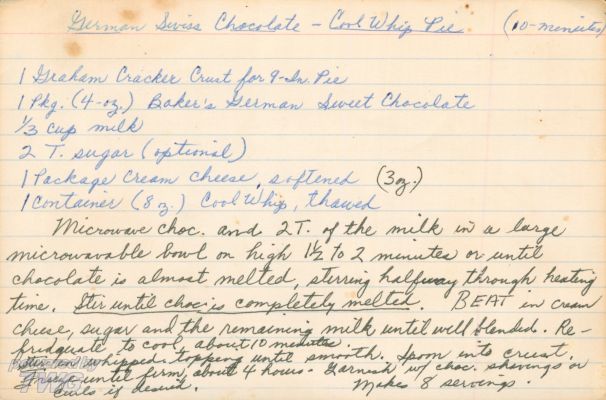 German Swiss Chocolate - Cool Whip Pie (10-minutes)
1 Graham Cracker Crust for 9-In. Pie
1 Pkg. (4-oz.) Baker's German Sweet Chocolate
1/3 cup milk
2 T. sugar (optional)
1 Package Cream Cheese, softened (3oz.)
1 Container (8 oz.) Cool Whip, thawed
Microwave choc. and 2T. of the milk in a large
microwavable bowl on high 1½ to 2 minutes or until
chocolate is almost melted, stirring halfway through heating
time. Stir until choc. is completely melted. BEAT in cream
cheese, sugar and the remaining milk until well blended. Re-
fridguate to cool, about 10 minutes.
Stir in whipped topping until smooth. Spoon into crust.
Freeze until firm, about 4 hours - Garnish w/ choc. shavings or
curls if desired. Makes 8 servings.
TWG